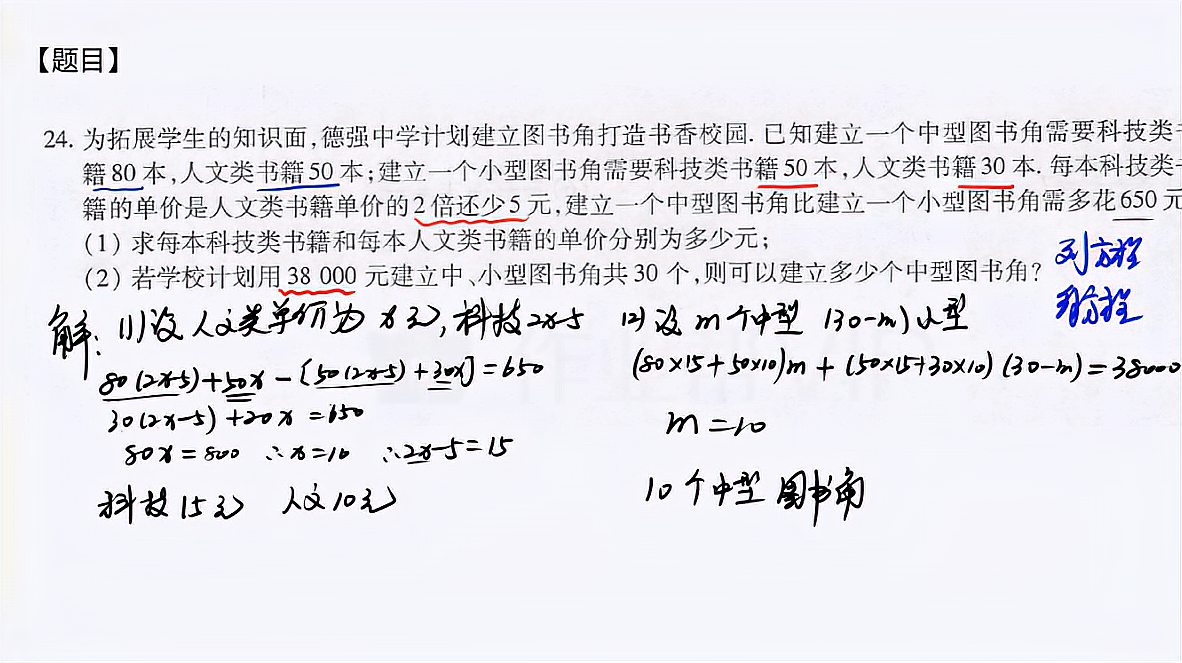 【题目】
24. 为拓展学生的知识面,德强中学计划建立图书角打造书香校园. 已知建立一个中型图书角需要科技类书
籍 80 本,人文类书籍 50 本;建立一个小型图书角需要科技类书籍 50 本,人文类书籍 30 本. 每本科技类书
籍的单价是人文类书籍单价的 2 倍还少 5 元,建立一个中型图书角比建立一个小型图书角需多花 650 元
(1) 求每本科技类书籍和每本人文类书籍的单价分别为多少元;
(2) 若学校计划用 38 000 元建立中、小型图书角共 30 个,则可以建立多少个中型图书角?
列方程
解方程
解: (1)设人文类单价为 x元,科技2x-5
80(2x-5)+50x-[50(2x-5)+30x]=650
30(2x-5)+20x=650
80x=800 ∴x=10 ∴2x-5=15
科技15元 人文10元
(2)设 m个中型 (30-m)小型
(80×15+50×10)m+(50×15+30×10)(30-m)=38000
m=10
10个中型图书角